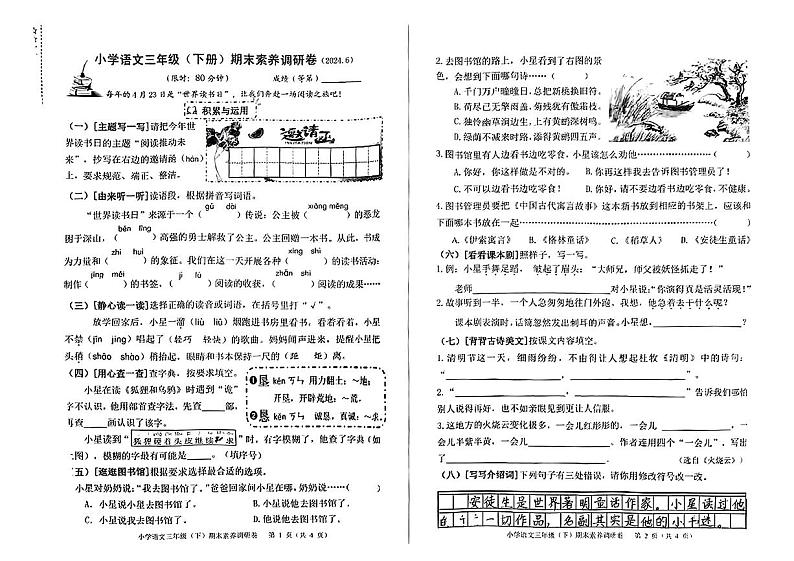 小学语文三年级（下册）期末素养调研卷（2024.6）
（限时：80分钟） 成绩（等第）
每年的4月23日是“世界读书日”，让我们奔赴一场阅读之旅吧！
积累与运用
（一）[主题写一写]请把今年世
界读书日的主题“阅读推动未
来”，抄写在右边的邀请函（hán）
上，要求规范、端正、整洁。
邀请函
INVITATION
（二）[由来听一听]读语段，根据拼音写词语。
gǔ dài xiōng měng
“世界读书日”来源于一个（ ）传说：公主被（ ）的恶龙
běn lǐng
困于深山，（ ）高强的勇士解救了公主。公主回赠一本书。从此，书成
zhì huì
为力量和（ ）的象征。我们在这一天开展各种（ ）的读书活动：
jīng měi zhēn shí
制作（ ）的书签，（ ）阅读的收获，（ ）阅读的成果……
（三）[静心读一读]选择正确的读音或词语，在括号里打“√”。
放学回家后，小星一溜（liù liū）烟跑进书房里看书，看着看着，小星
不禁（jīn jìng）唱起了（轻巧 轻快）的歌曲。妈妈闻声进来，提醒小星把
头稍（shāo shào）稍抬起，眼睛和书本保持一尺的（距 距）离。
（四）[用心查一查]查字典，按要求空。
小星在读《狐狸和乌鸦》时遇到“诡”
字不认识，他用部首查字法，先查 部，
再查 画认识了该字。
①垦 kěn ㄎㄣˇ 用力翻土：～地；
开垦，开辟荒地：～荒。
②恳 kěn ㄎㄣˇ 诚恳，真诚：～求。
小星读到“狐狸硬着头皮继续 求”时，有字模糊了，他查了字典（如
上图），模糊的字最有可能是 。（填序号）
（五）[逛逛图书馆]根据要求选择最合适的选项。
小星对奶奶说：“我去图书馆了。”爸爸回家问小星在哪，奶奶……（ ）
A．小星说小星去图书馆了。 B．小星说他去图书馆了。
C．小星说我去图书馆了。 D．他说他去图书馆了。
小学语文三年级（下）期末素养调研卷 第1页（共4页）
2. 去图书馆的路上，小星看到了右图的景
色，会想到下面哪句诗……（ ）
A. 千门万户曈曈日，总把新桃换旧符。
B. 荷尽已无擎雨盖，菊残犹有傲霜枝。
C. 独怜幽草涧边生，上有黄鹂深树鸣。
D. 绿荫不减来时路，添得黄鹂四五声。
3. 图书馆里有人边看书边吃零食，小星该怎么劝他……（ ）
A. 你好，你这样做是不对的。 B. 你再这样我去告诉图书管理员了！
C. 不可以边看书边吃零食！ D. 你好，请不要边看书边吃零食，不健康。
4. 图书管理员要把《中国古代寓言故事》这本新书放到相应的书架上，应该和
下面哪本书放在一起……（ ）
A.《伊索寓言》 B.《格林童话》 C.《稻草人》 D.《安徒生童话》
（六）[看看课本剧]照样子，写一写。
1. 例：小星手舞足蹈，皱起了眉头：“大师兄，师父被妖怪抓走了！”
老师 对小星说：“你演得真是活灵活现！”
2. 故事听到一半，一个人急匆匆地往门外跑，我想，他急着去干什么呢？
课本剧表演时，话筒忽然发出刺耳的声音。小星想，
（七）[背背古诗美文]按课文内容填空。
1. 清明节这一天，细雨纷纷，不由得让人想起杜牧《清明》中的诗句：
“ ， 。”
2. “ ， ”告诉我们哪怕
别人说得再好，也不如亲眼见到更让人信服。
3. 这地方的火烧云变化极多，一会儿红彤彤的，一会儿 ，一
会儿半紫半黄，一会儿 、作者连用四个“一会儿”，写出
了 。（选自《火烧云》）
（八）[写写介绍词]下列句子有三处错误，请你用修改符号改一改。
安徒生是世界著明童话作家。小星读过他
一切作品，名副其实是他的小干迷。
小学语文三年级（下）期末素养调研卷 第2页（共4页）